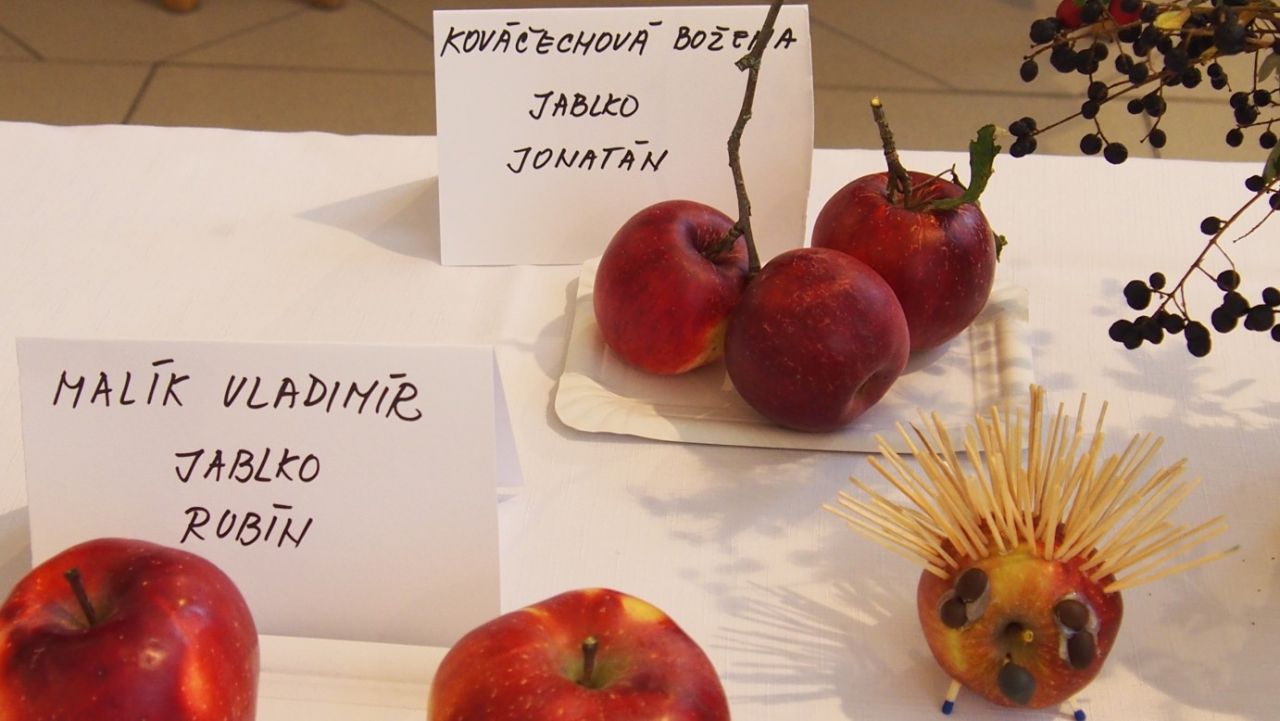 KOVÁČECHOVÁ BOŽENA
JABLKO
JONATÁN
MALÍK VLADIMÍR
JABLKO
RUBÍN